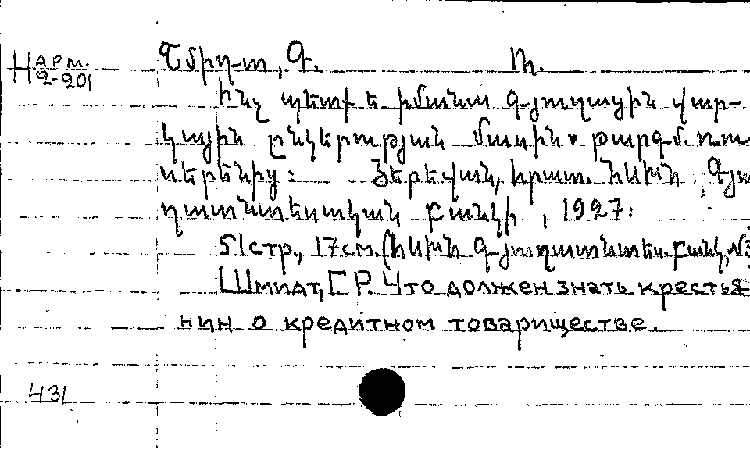 Н АРМ. 2-201
Շմիդտ, Գ. Ռ.
Ինչ պետք է իմանա գյուղացին վար-
կային ընկերության մասին. թարգմ. ռու-
սերենից: Յերեվան, հրատ. ՀՍԽՀ, Գյու
ղատնտեսական բանկի, 1927:
51стр., 17см. (ՀՍԽՀ Գյուղատնտես. բանկ, №3
Шмидт, Г Р. Что должен знать крестья-
нин о кредитном товариществе.
431